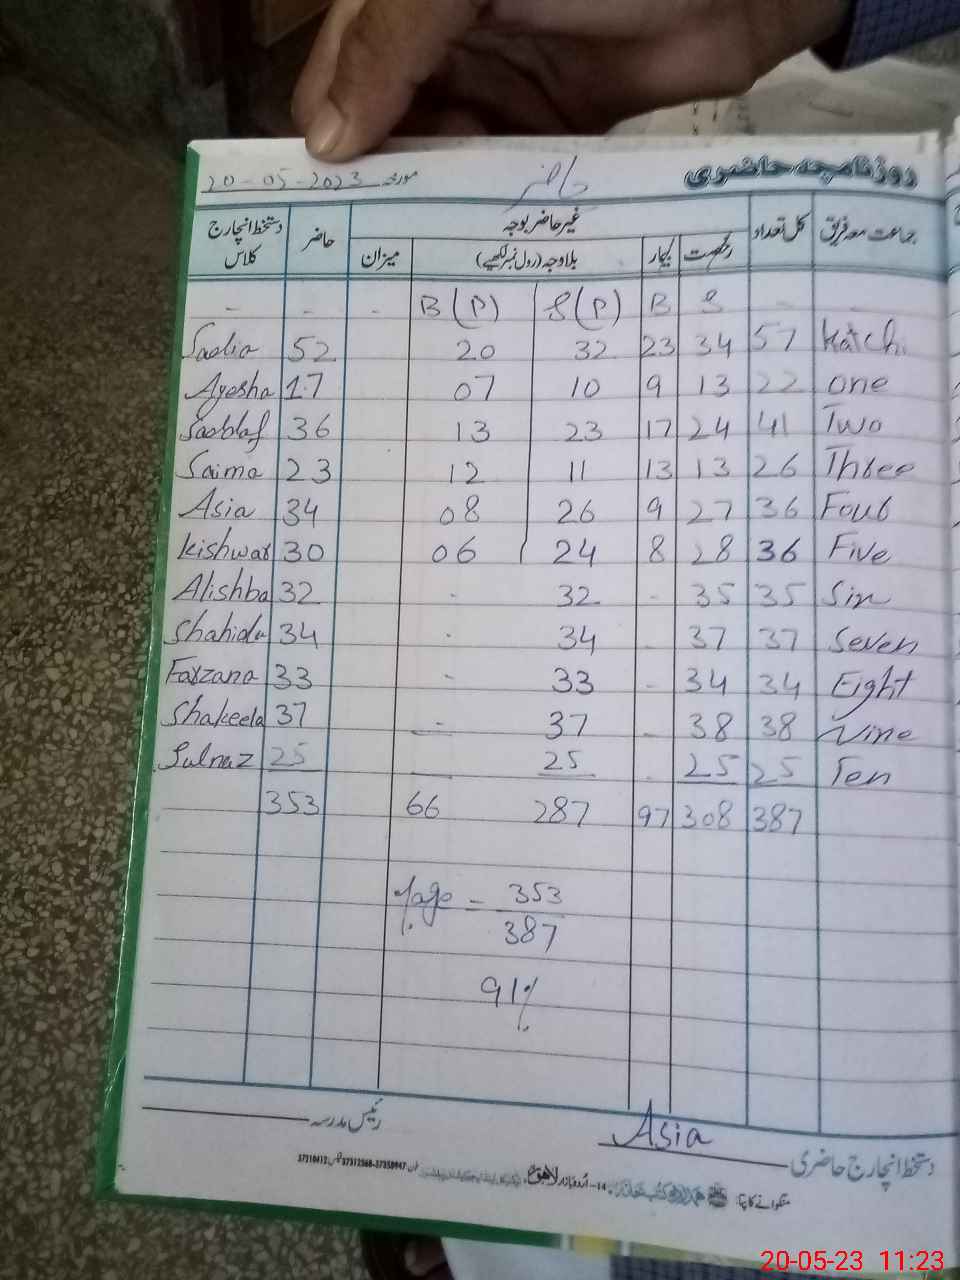 روزنامچہ حاضری حاضر مورخہ 20-05-2023
جماعت معہ فریق کل تعداد غیر حاضر بوجہ حاضر دستخط انچارج کلاس
رخصت بیمار بلاوجہ (رول نمبر لکھیے) میزان
- - - B(P) S(P) B S - -
Sadia 52 20 32 23 34 57 Katchi
Ayesha 17 07 10 9 13 22 one
36 13 23 17 24 41 Two
Saima 23 12 11 13 13 26 Three
Asia 34 08 26 9 27 36 Four
Kishwar 30 06 24 8 28 36 Five
Alishba 32 - 32 - 35 35 Six
Shahida 34 - 34 - 37 37 Seven
Farzana 33 - 33 - 34 34 Eight
Shakeela 37 - 37 - 38 38 Nine
Gulnaz 25 - 25 - 25 25 Ten
353 66 287 97 308 387
%age = 353
387
91%
رئیس مدرسہ
Asia
دستخط انچارج حاضری
منگوانے کا پتہ: 14-اردو بازار لاہور
20-05-23 11:23